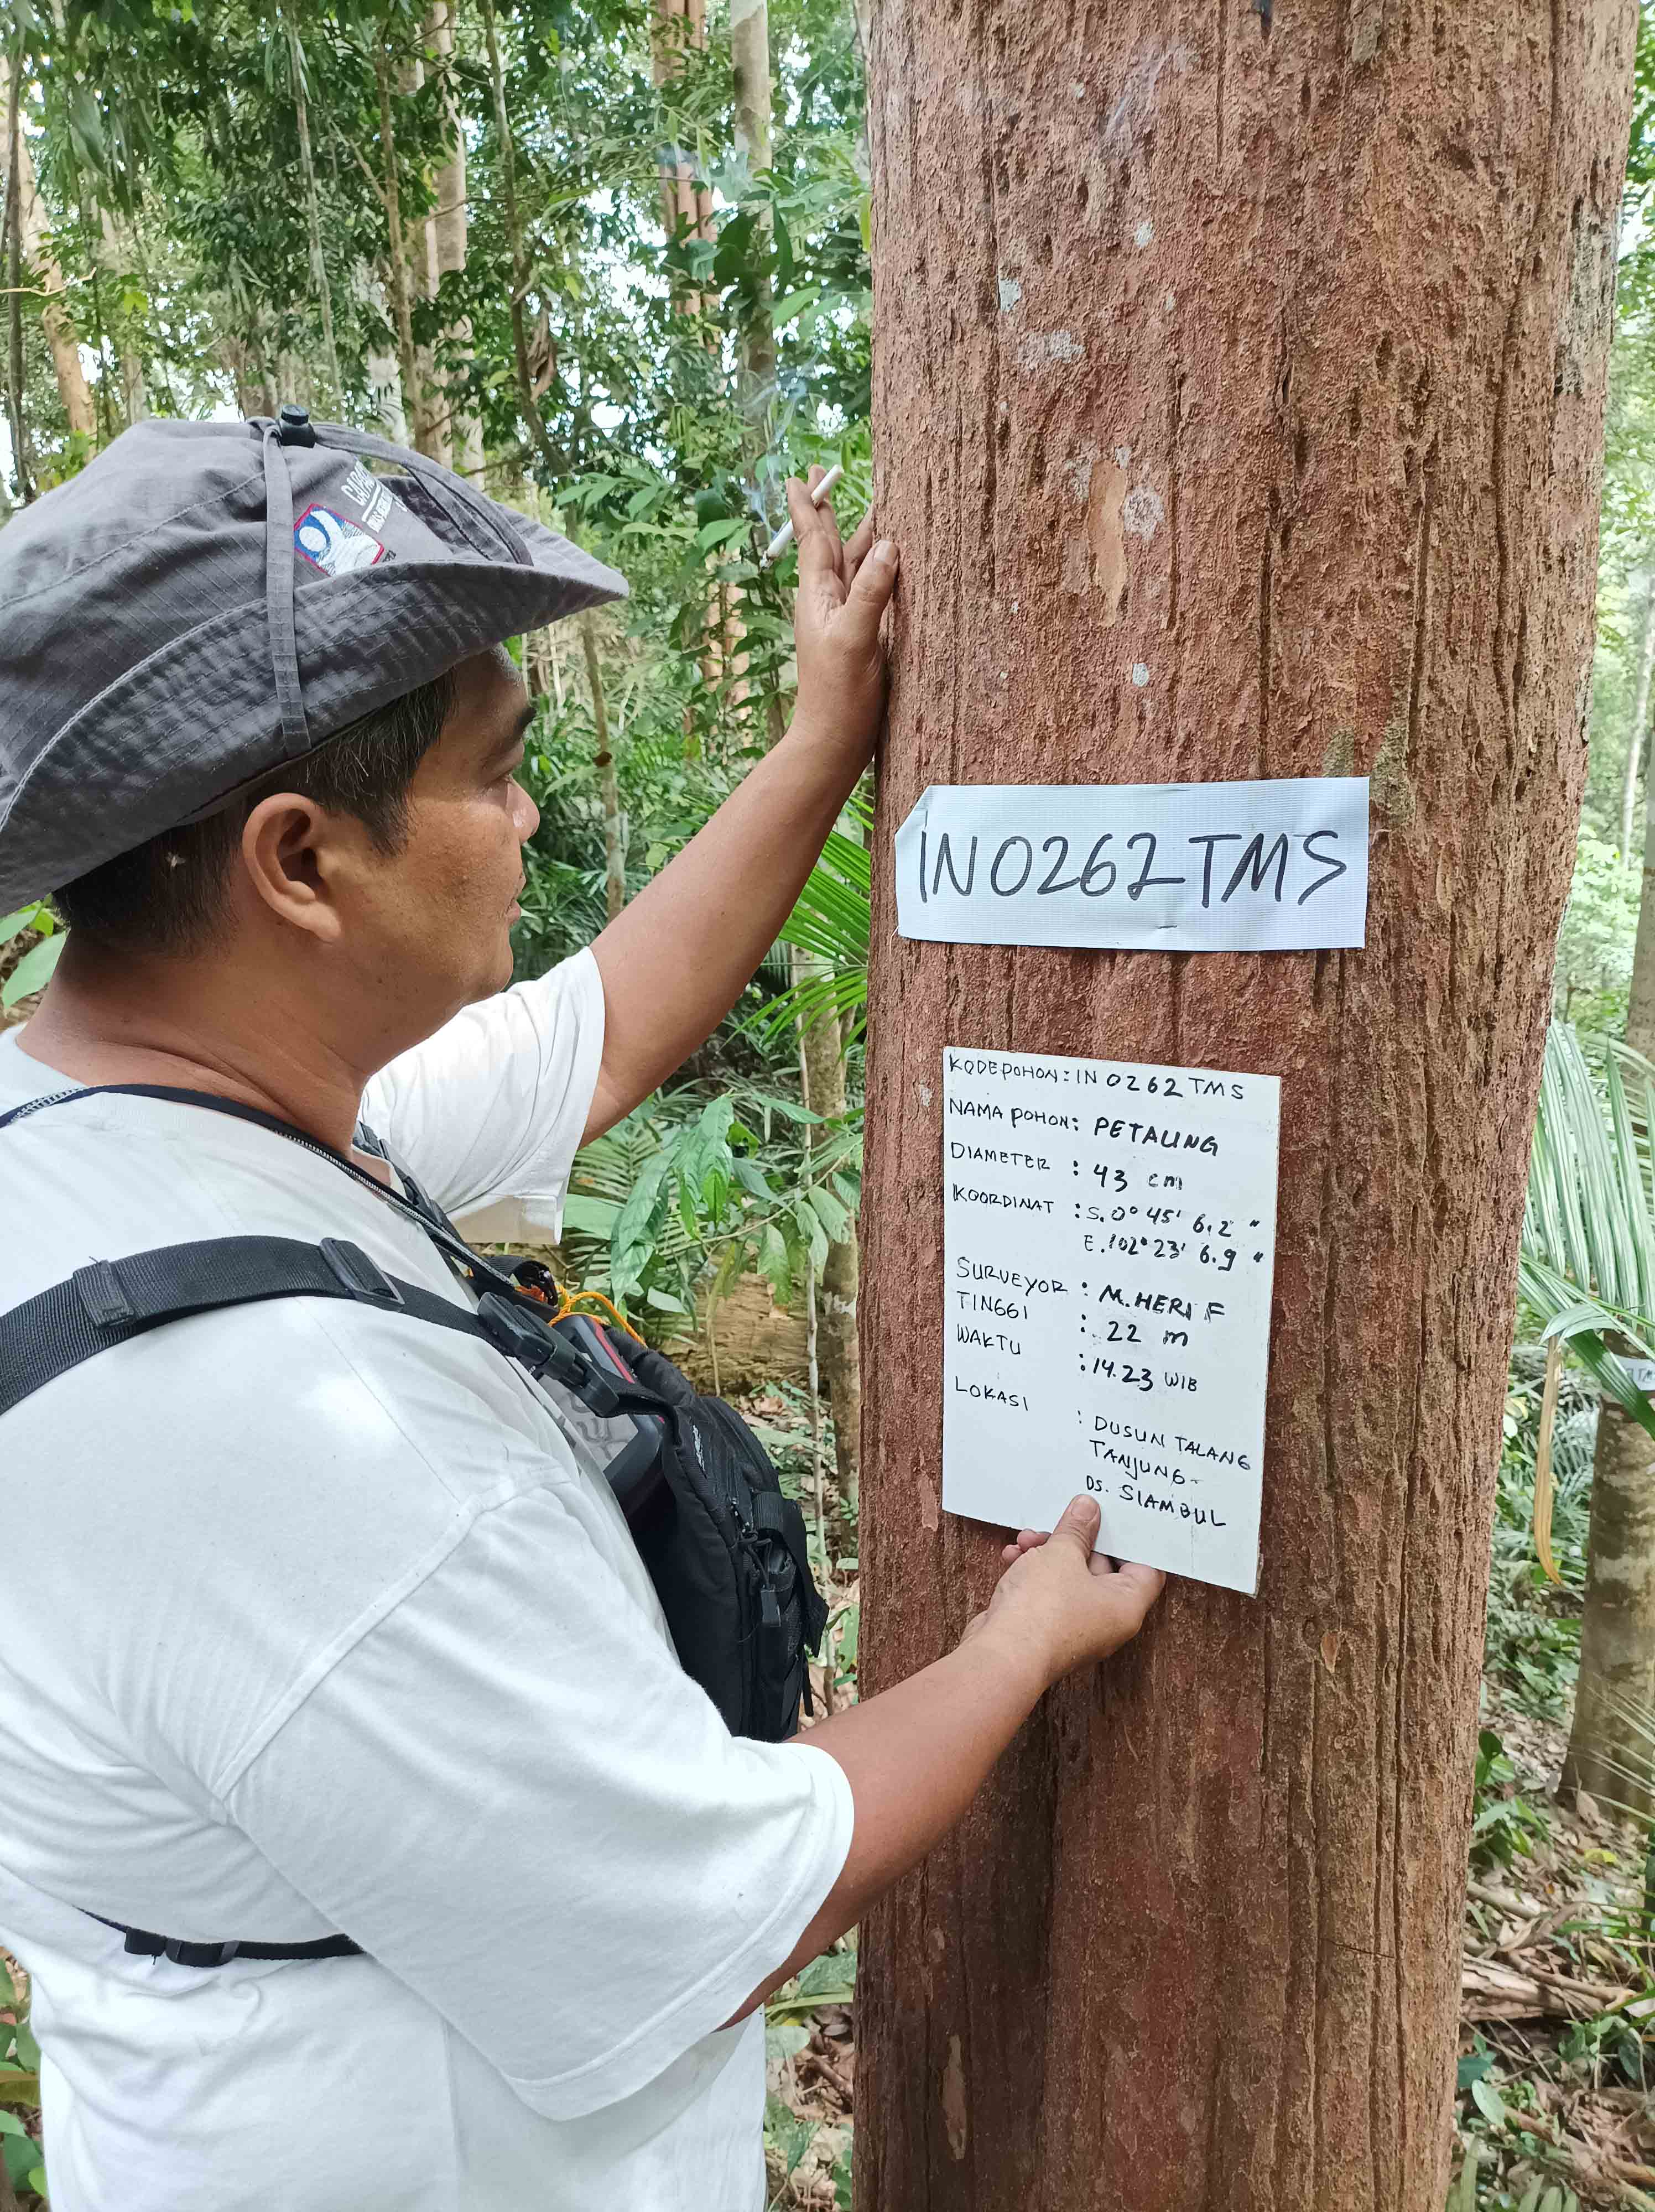 IN0262TMS
KODE POHON : IN 0262 TMS
NAMA POHON : PETALING
DIAMETER : 43 cm
KOORDINAT : S. 0° 45' 6.2 "
E. 102° 23' 6.9 "
SURVEYOR : M. HERI F
TINGGI : 22 m
WAKTU : 14.23 WIB
LOKASI : DUSUN TALANG
TANJUNG -
DS. SIAMBUL